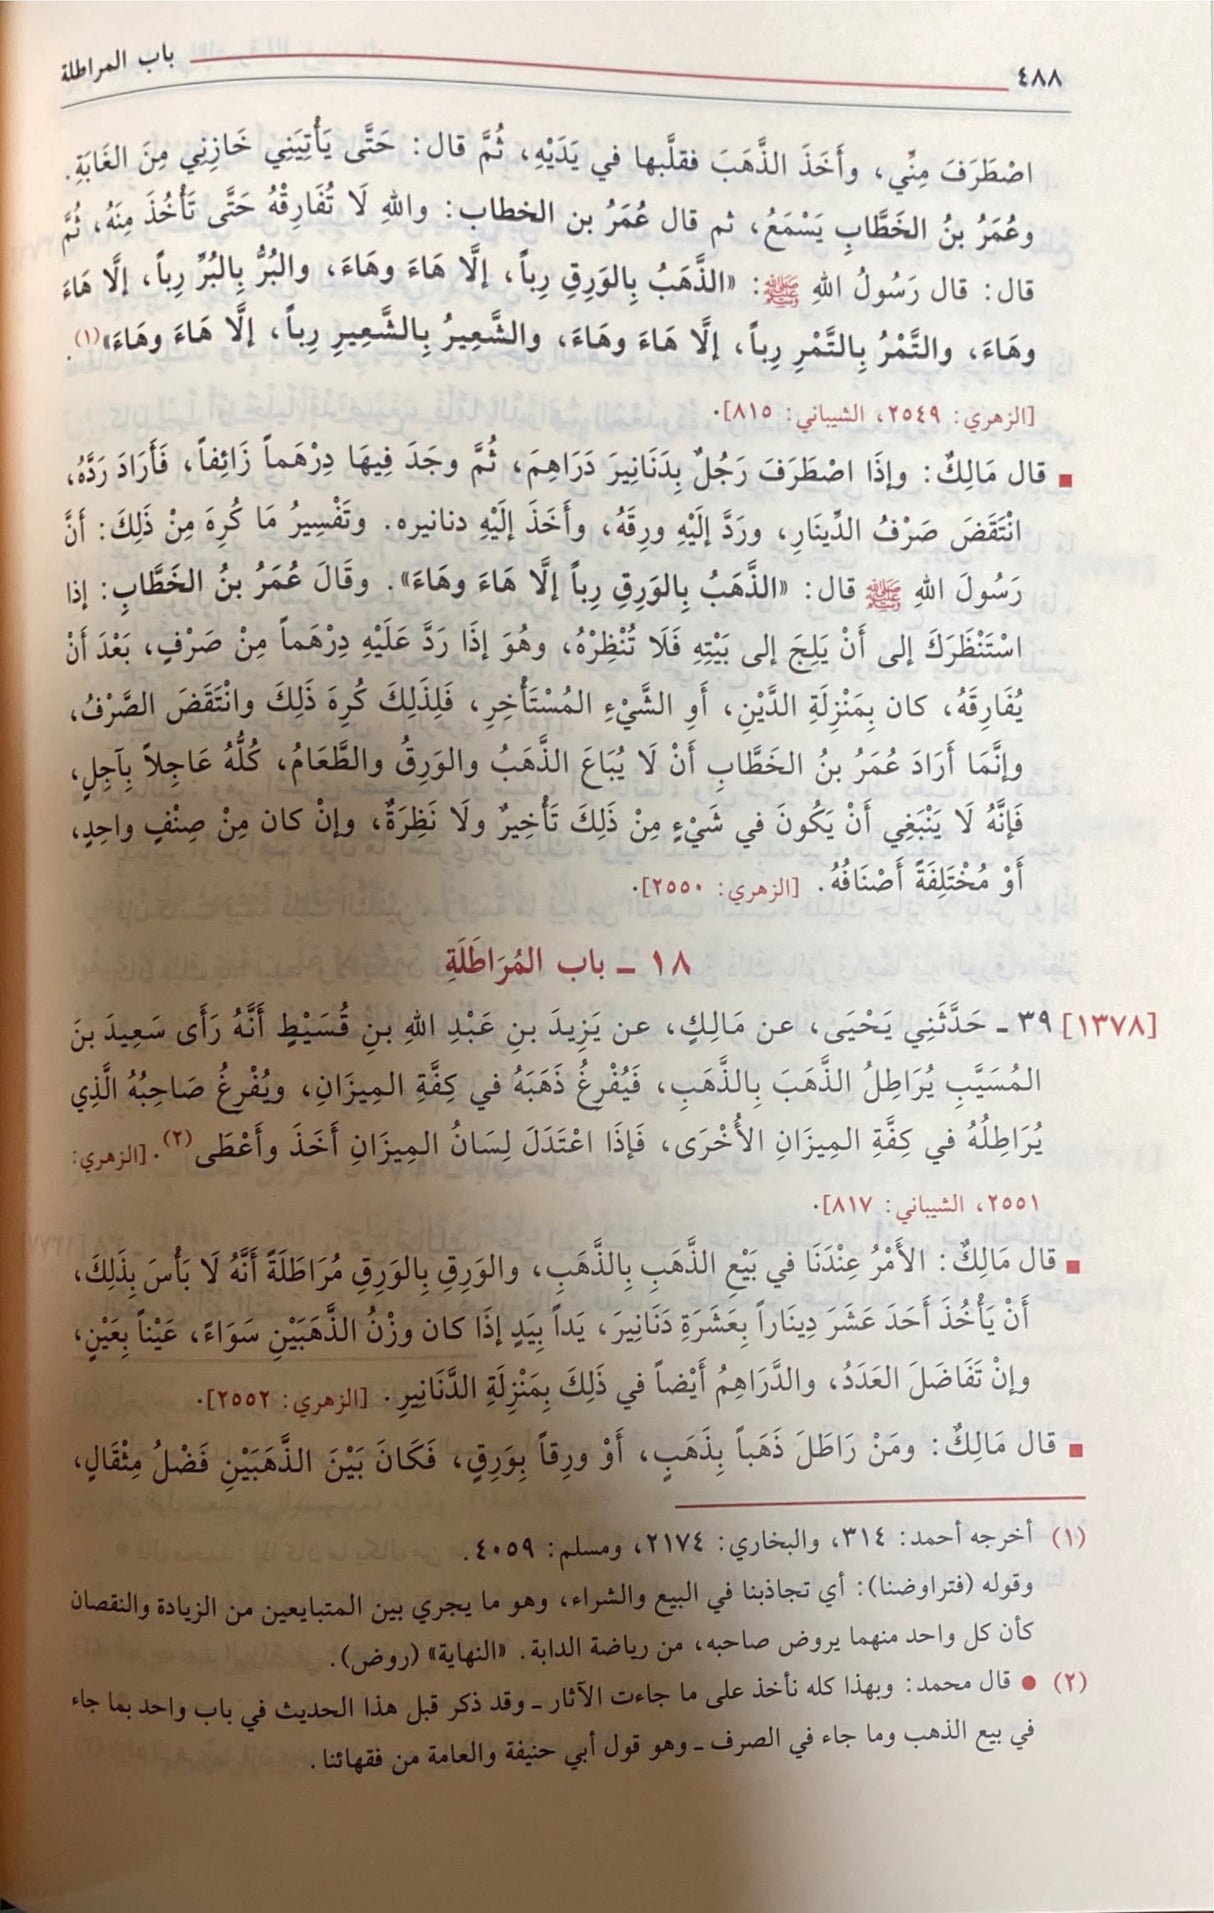 ٤٨٨ باب المراطلة
اصْطَرَفَ مِنِّي، وأَخَذَ الذَّهَبَ فقلَّبها في يَدَيْهِ، ثُمَّ قال: حَتَّى يَأْتِيَنِي خَازِنِي مِنَ الغَابَةِ.
وعُمَرُ بنُ الخَطَّابِ يَسْمَعُ، ثم قال عُمَرُ بن الخطاب: واللهِ لَا تُفَارِقْهُ حَتَّى تَأْخُذَ مِنَهُ، ثُمَّ
قال: قال رَسُولُ اللهِ ﷺ: «الذَّهَبُ بِالوَرِقِ رِباً، إلَّا هَاءَ وهَاءَ، والبُرُّ بِالبُرِّ رِباً، إلَّا هَاءَ
وهَاءَ، والتَّمْرُ بِالتَّمْرِ رِباً، إلَّا هَاءَ وهَاءَ، والشَّعِيرُ بِالشَّعِيرِ رِباً، إلَّا هَاءَ وهَاءَ»(١).
[الزهري: ٢٥٤٩، الشيباني: ٨١٥].
■ قال مَالِكٌ: وإذَا اصْطَرَفَ رَجُلٌ بِدَنَانِيرَ دَرَاهِمَ، ثُمَّ وجَدَ فِيهَا دِرْهَماً زَائِفاً، فَأَرَادَ رَدَّهُ،
انْتَقَضَ صَرْفُ الدِّينَارِ، ورَدَّ إلَيْهِ ورِقَهُ، وأَخَذَ إلَيْهِ دنانيره. وتَفْسِيرُ مَا كُرِهَ مِنْ ذَلِكَ: أَنَّ
رَسُولَ اللهِ ﷺ قال: «الذَّهَبُ بِالوَرِقِ رِباً إلَّا هَاءَ وهَاءَ». وقَالَ عُمَرُ بنُ الخَطَّابِ: إذا
اسْتَنْظَرَكَ إلى أَنْ يَلِجَ إلى بَيْتِهِ فَلَا تُنْظِرْهُ، وهُوَ إذَا رَدَّ عَلَيْهِ دِرْهَماً مِنْ صَرْفٍ، بَعْدَ أَنْ
يُفَارِقَهُ، كان بِمَنْزِلَةِ الدَّيْنِ، أَوِ الشَّيْءِ المُسْتَأْخِرِ، فَلِذَلِكَ كُرِهَ ذَلِكَ وانْتَقَضَ الصَّرْفُ،
وإنَّمَا أَرَادَ عُمَرُ بنُ الخَطَّابِ أَنْ لَا يُبَاعَ الذَّهَبُ والوَرِقُ والطَّعَامُ، كُلُّهُ عَاجِلاً بِآجِلٍ،
فَإنَّهُ لَا يَنْبَغِي أَنْ يَكُونَ في شَيْءٍ مِنْ ذَلِكَ تَأْخِيرٌ ولَا نَظِرَةٌ، وإنْ كان مِنْ صِنْفٍ واحِدٍ،
أَوْ مُخْتَلِفَةً أَصْنَافُهُ. [الزهري: ٢٥٥٠].
١٨ ـ باب المُرَاطَلَةِ
[١٣٧٨] ٣٩ ـ حَدَّثَنِي يَحْيَى، عن مَالِكٍ، عن يَزِيدَ بنِ عَبْدِ اللهِ بنِ قُسَيْطٍ أَنَّهُ رَأَى سَعِيدَ بنَ
المُسَيَّبِ يُرَاطِلُ الذَّهَبَ بِالذَّهَبِ، فَيُفْرِغُ ذَهَبَهُ في كِفَّةِ المِيزَانِ، ويُفْرِغُ صَاحِبُهُ الَّذِي
يُرَاطِلُهُ في كِفَّةِ المِيزَانِ الأُخْرَى، فَإذَا اعْتَدَلَ لِسَانُ المِيزَانِ أَخَذَ وأَعْطَى(٢). [الزهري:
٢٥٥١، الشيباني: ٨١٧].
■ قال مَالِكٌ: الأَمْرُ عِنْدَنَا في بَيْعِ الذَّهَبِ بِالذَّهَبِ، والوَرِقِ بِالوَرِقِ مُرَاطَلَةً أَنَّهُ لَا بَأْسَ بِذَلِكَ،
أَنْ يَأْخُذَ أَحَدَ عَشَرَ دِينَاراً بِعَشَرَةِ دَنَانِيرَ، يَداً بِيَدٍ إذَا كان وزْنُ الذَّهَبَيْنِ سَوَاءً، عَيْناً بِعَيْنٍ،
وإنْ تَفَاضَلَ العَدَدُ، والدَّرَاهِمُ أَيْضاً في ذَلِكَ بِمَنْزِلَةِ الدَّنَانِيرِ. [الزهري: ٢٥٥٢].
■ قال مَالِكٌ: ومَنْ رَاطَلَ ذَهَباً بِذَهَبٍ، أَوْ ورِقاً بِوَرِقٍ، فَكَانَ بَيْنَ الذَّهَبَيْنِ فَضْلُ مِثْقَالٍ،
(١) أخرجه أحمد: ٣١٤، والبخاري: ٢١٧٤، ومسلم: ٤٠٥٩.
وقوله (فتراوضنا): أي تجاذبنا في البيع والشراء، وهو ما يجري بين المتبايعين من الزيادة والنقصان
كأن كل واحد منهما يروض صاحبه، من رياضة الدابة. «النهاية» (روض).
(٢) ● قال محمد: وبهذا كله نأخذ على ما جاءت الآثار ـ وقد ذكر قبل هذا الحديث في باب واحد بما جاء
في بيع الذهب وما جاء في الصرف ـ وهو قول أبي حنيفة والعامة من فقهائنا.